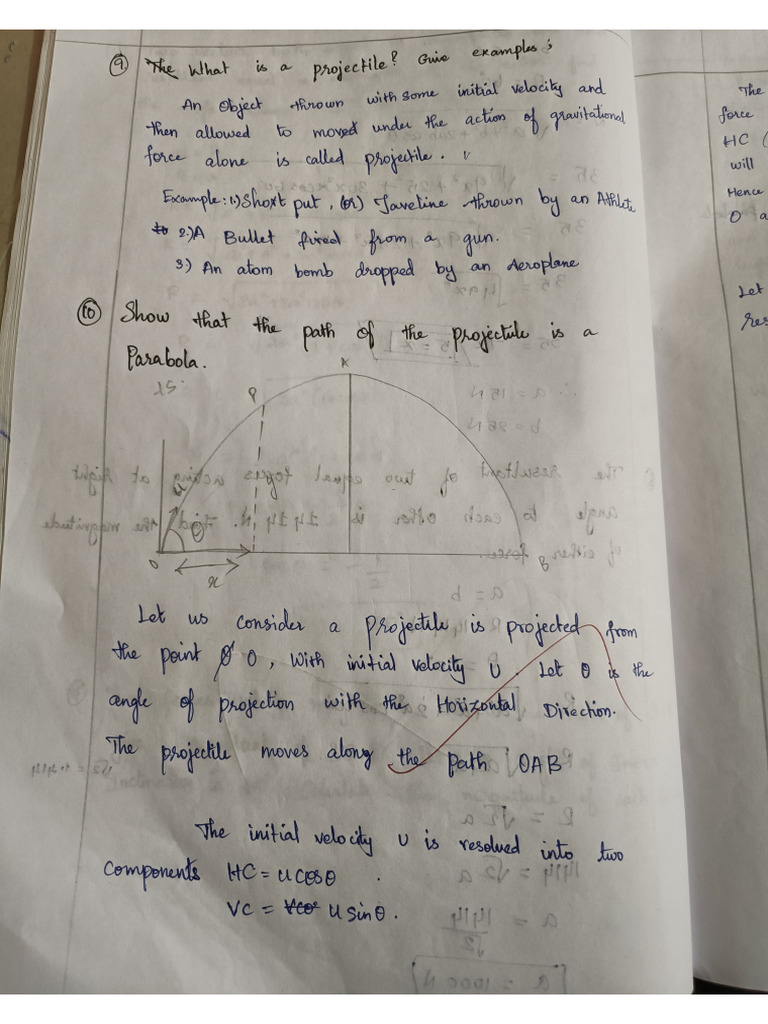 9) The What is a projectile? Give examples;
An Object thrown with some initial velocity and
then allowed to moved under the action of gravitational
force alone is called projectile.
Example: 1.) Short put, (or) Javeline thrown by an Athlete
to 2.) A Bullet fired from a gun.
3.) An atom bomb dropped by an Aeroplane
10) Show that the path of the projectile is a
Parabola.
A
P
u
θ
O
B
x
Let us consider a Projectile is projected from
the point O O, with initial velocity U. Let θ is the
angle of projection with the Horizontal Direction.
The projectile moves along the path OAB
The initial velocity U is resolved into two
components HC = u cosθ.
VC = Vcos u sinθ.
The
force
HC (
will
Hence
O a
Let
res